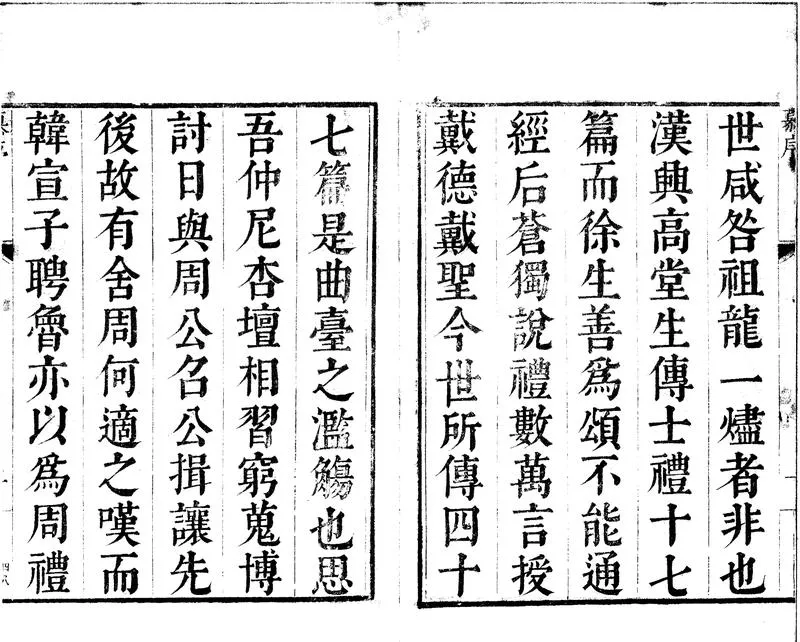 世咸咎祖龍一燼者非也
漢興高堂生傳士禮十七
篇而徐生善爲頌不能通
經后蒼獨說禮數萬言授
戴德戴聖今世所傳四十
七篇是曲臺之濫觴也思
吾仲尼杏壇相習窮蒐博
討日與周公召公揖讓先
後故有舍周何適之嘆而
韓宣子聘魯亦以爲周禮